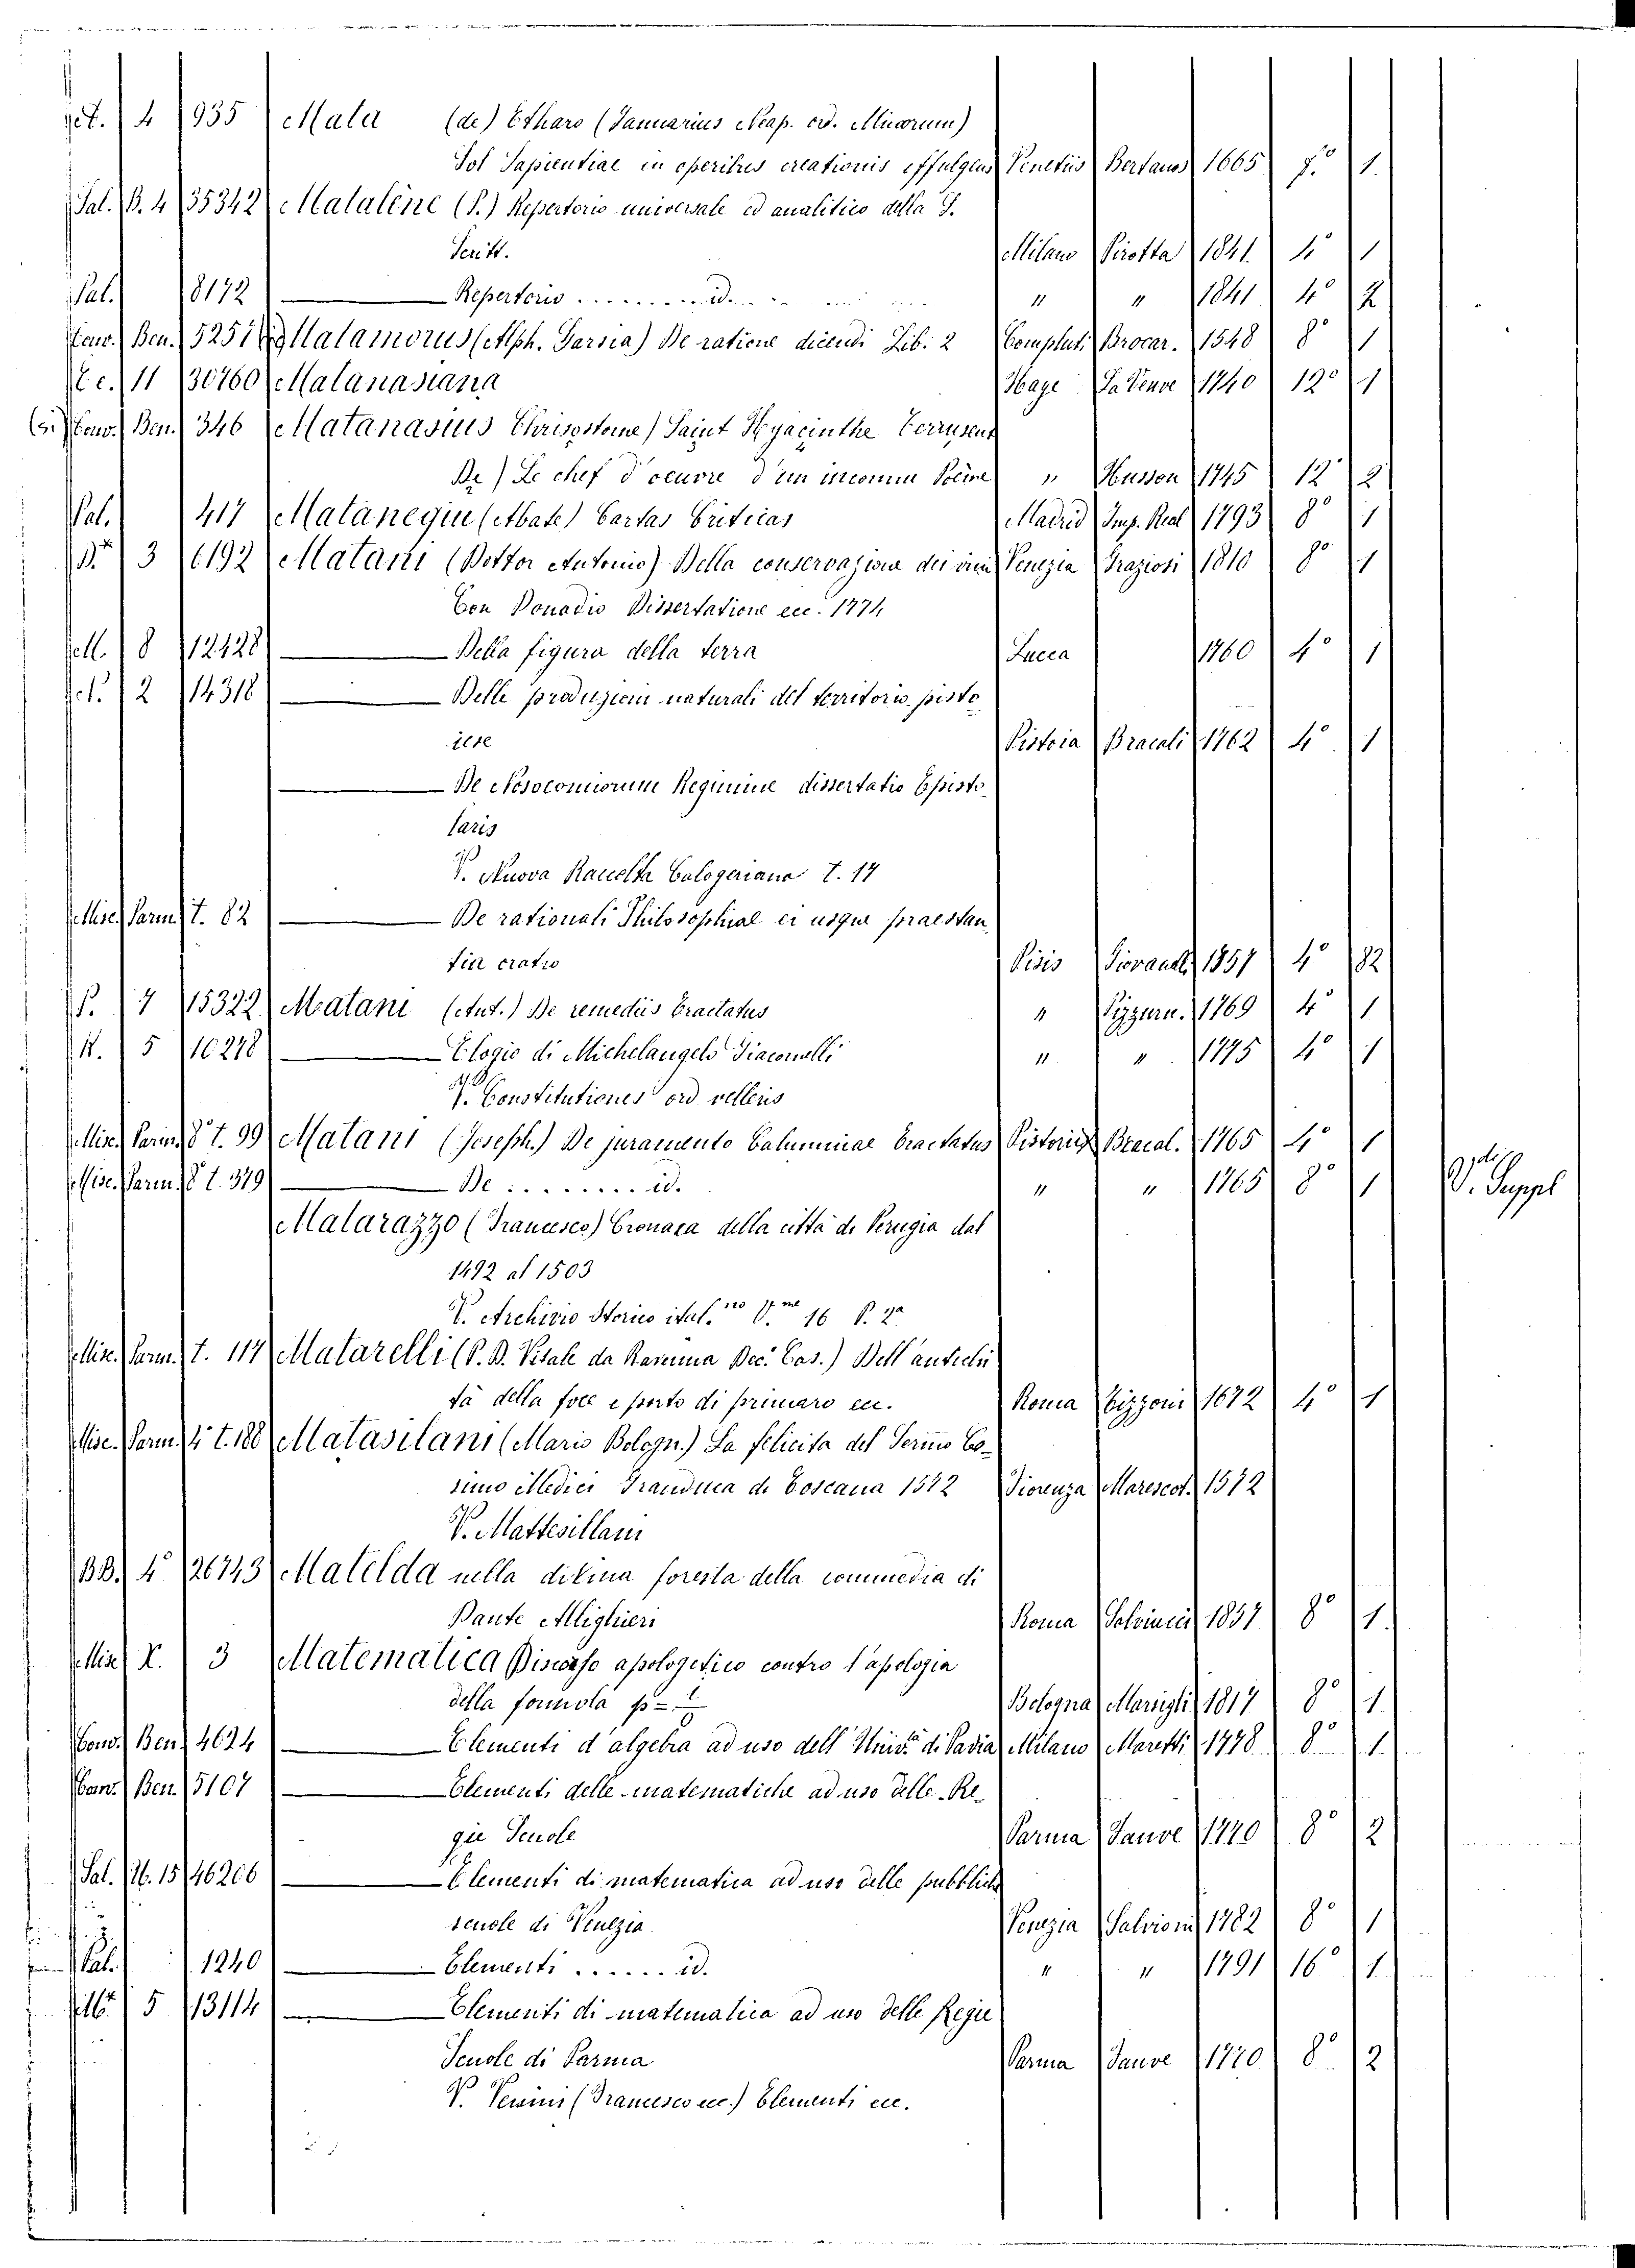 4 935 Mata (de) Etharo (Januarius Neap. ord. Minorum)
Sol Sapientiae in operibus creationis effulgens Venetiis Bertanos 1665 f.º 1.
Sal. B. 4 35342 Matalène (P.) Repertorio universale ed analitico della S.
Scritt. Milano Pirotta 1841. 4º 1
Pal. 8172 — Repertorio ......... id. " " 1841 4º 2
Conv. Ben. 5251 Matamorus (Alph. Garsia) De ratione dicendi Lib. 2 Compluti Brocar. 1548 8º 1
11 30760 Matanasiana Haye La Veuve 1740 12º 1
Conv. Ben. 346 Matanasius Chrisostome) Saint Hyacinthe
De) Le chef d'oeuvre d'un inconnu Poème " Husson 1745 12 2
Pal. 417 Matanegui (Abate) Cartas Criticas Madrid Imp. Real 1793 8º 1
3 6192 Matani (Dottor Antonio) Della conservazione dei vini Venezia Graziosi 1810 8º 1
Con Donadio Dissertatione ecc. 1774
8 12428 — Della figura della terra Lucca 1760 4º 1
2 14318 — Delle produzioni naturali del territorio pisto
iese Pistoia Bracali 1762 4º 1
— De Nosocomiorum Regimine dissertatio Episto-
laris
V. Nuova Raccolta Calogeriana t. 17
Misc. Parm. t. 82 — De rationali Philosophial ei usque praestan
tia oratio Pisis 1757 4º 82
P. 7 15322 Matani (Ant.) De remediis Tractatus " Pizzurn. 1769 4º 1
5 10278 — Elogio di Michelangelo Giacomelli " " 1775 4º 1
V. Constitutiones ord. velleris
Misc. Parm. 8º t. 99 Matani (Joseph.) De juramento Calumniae Tractatus Pistorii Bracal. 1765 4º 1
Misc. Parm. 8º t. 379 — De ........ id. " " 1765 8º 1 V. Suppl
Matarazzo (Francesco) Cronaca della città di Perugia dal
1492 al 1503
V. Archivio Storico ital.no V.me 16 P. 2a
Misc. Parm. t. 117 Matarelli (P. D. Vitale da Ravenna Dec. Cas.) Dell'antichi
tà della foce e porto di primaro ec. Roma Tizzoni 1672 4º 1
Misc. Parm. 4º t. 188 Matasilani (Mario Bologn.) La felicita del Sermo Co-
simo Medici Granduca di Toscana 1572 Fiorenza Marescot. 1572
V. Mattesillani
BB. 4º 26743 Matelda nella divina foresta della commedia di
Dante Allighieri Roma Salviucci 1857 8º 1.
Misc. X. 3 Matematica Discorso apologetico contro l'apologia
della formola Bologna Marsigli 1817 8º 1.
Conv. Ben. 4624 — Elementi d'algebra ad uso dell'Univ.tà di Pavia Milano Marelli 1778 8º 1.
Conv. Ben. 5107 — Elementi delle matematiche ad uso delle Re-
gie Scuole Parma Faure 1770 8º 2
Sal. 15 46206 — Elementi di matematica ad uso delle pubbliche
scuole di Venezia Venezia Salvioni 1782 8º 1
Pal. 1240 — Elementi ...... id. " " 1791 16º 1.
5 13114 — Elementi di matematica ad uso delle Regie
Scuole di Parma Parma Faure 1770 8º 2
V. Venini (Francesco ecc.) Elementi ecc.